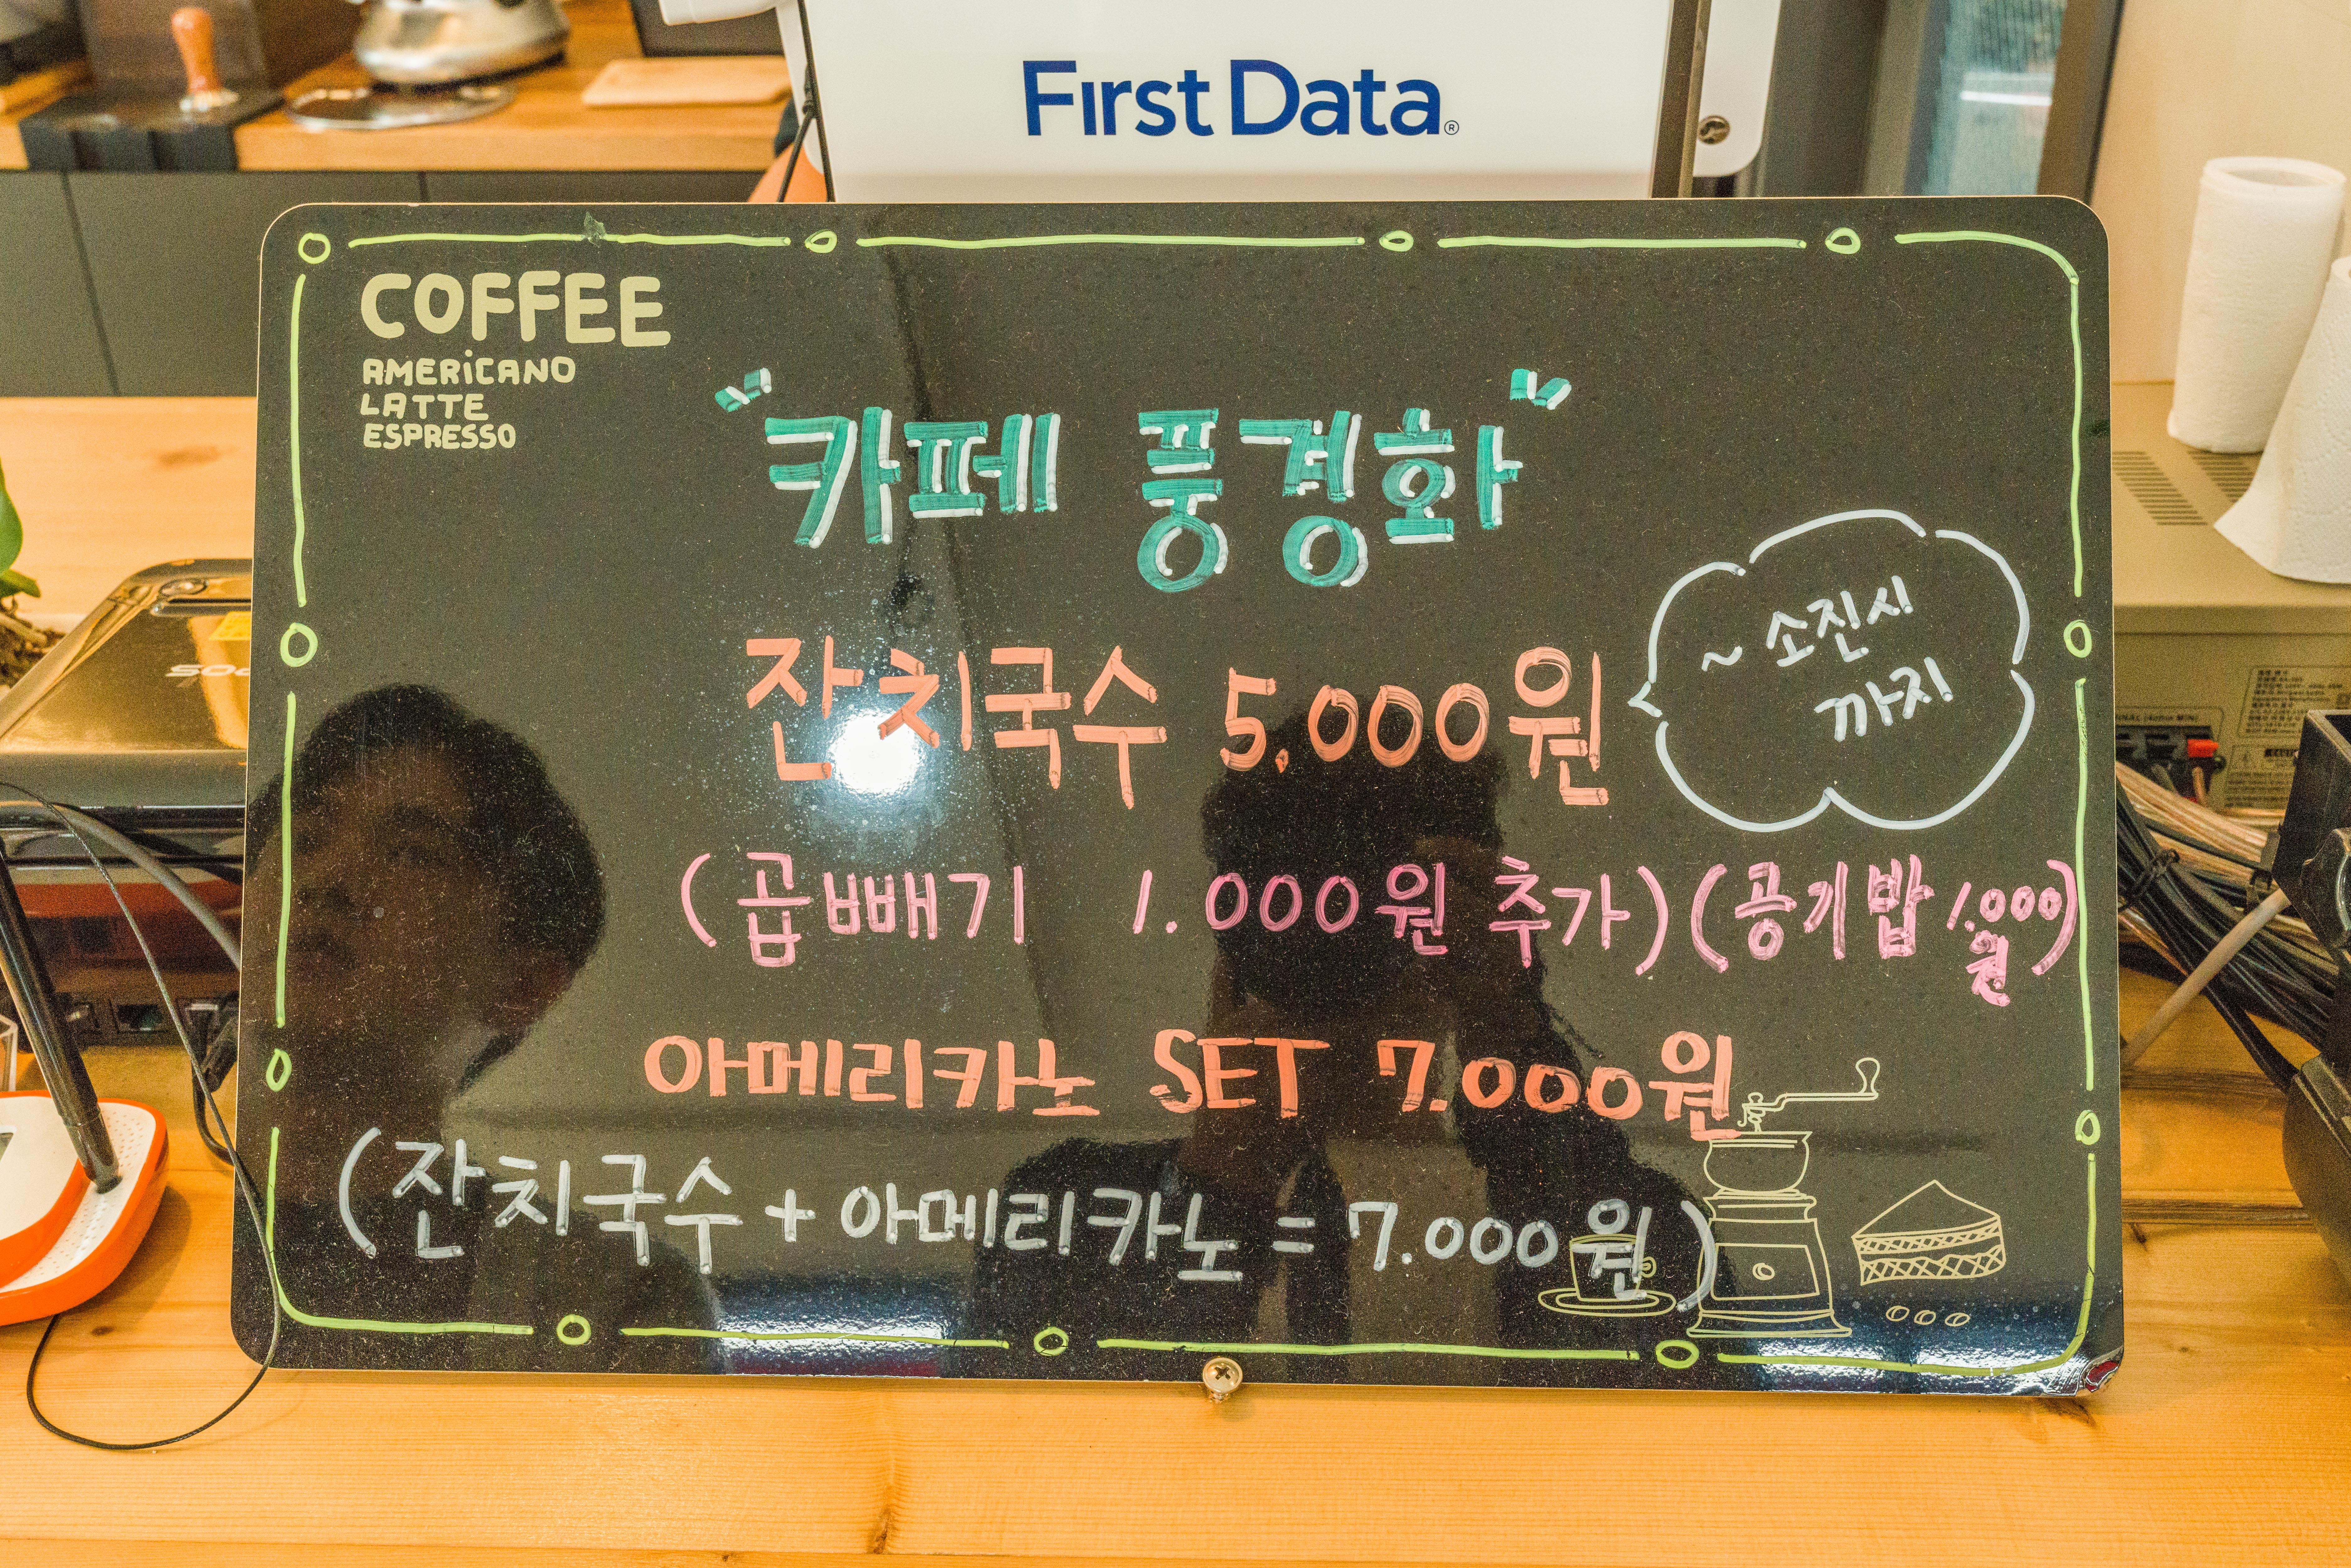 First Data®
COFFEE
AMERiCANO
LATTE
ESPRESSO
"카페 풍경화"
잔치국수 5,000원
~ 소진시
까지
(곱빼기 1.000원 추가) (공기밥 1.000원)
아메리카노 SET 7.000원
(잔치국수 + 아메리카노 = 7.000원)